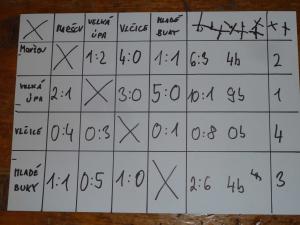 MARŠOV VELKÁ ÚPA VLČICE MLADÉ BUKY
MARŠOV 1:2 4:0 1:1 6:3 4b 2
VELKÁ ÚPA 2:1 3:0 5:0 10:1 9b 1
VLČICE 0:4 0:3 0:1 0:8 0b 4
MLADÉ BUKY 1:1 0:5 1:0 2:6 4b 3